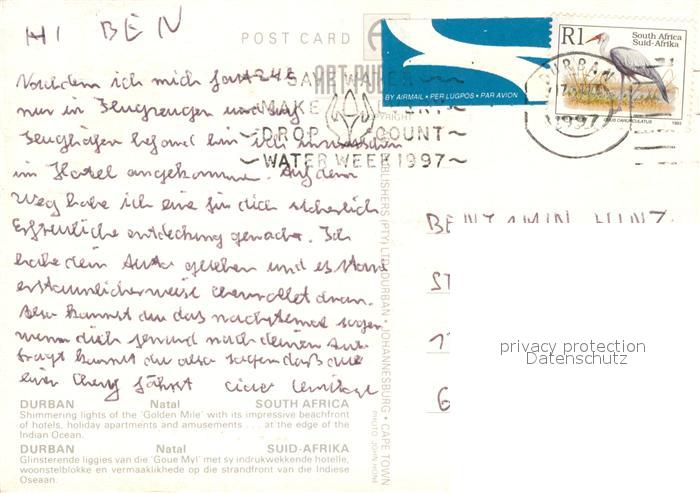 HI BEN
POST CARD
A
SAVE WATER
MAKE
DROP COUNT
WATER WEEK 1997
BY AIRMAIL • PER LUGPOS • PAR AVION
R1
South Africa
Suid-Afrika
1993
DURBAN
1997
Nachdem ich mich fast 24 h
nur in Flugzeugen und auf
Flughäfen befand bin ich inzwischen
im Hotel angekommen. Auf dem
Weg habe ich eine für dich sicherlich
Erfreuliche entdeckung gemacht. Ich
habe dein Auto gesehen und es stand
erstaunlicherweise Chevrolet dran.
Also kannst du das nächstemal sagen
wenn dich jemand nach deinem Auto
fragt kannst du also sagen daß du
einen Chevy fährst
BENJAMIN HINZ
ST
privacy protection
Datenschutz
DURBAN Natal SOUTH AFRICA
Shimmering lights of the 'Golden Mile' with its impressive beachfront
of hotels, holiday apartments and amusements . . . at the edge of the
Indian Ocean.
DURBAN Natal SUID-AFRIKA
Glinsterende liggies van die 'Goue Myl' met sy indrukwekkende hotelle,
woonstelblokke en vermaaklikhede op die strandfront van die Indiese
Oseaan.
PUBLISHERS (PTY) LTD DURBAN • JOHANNESBURG • CAPE TOWN
PHOTO: JOHN HONE